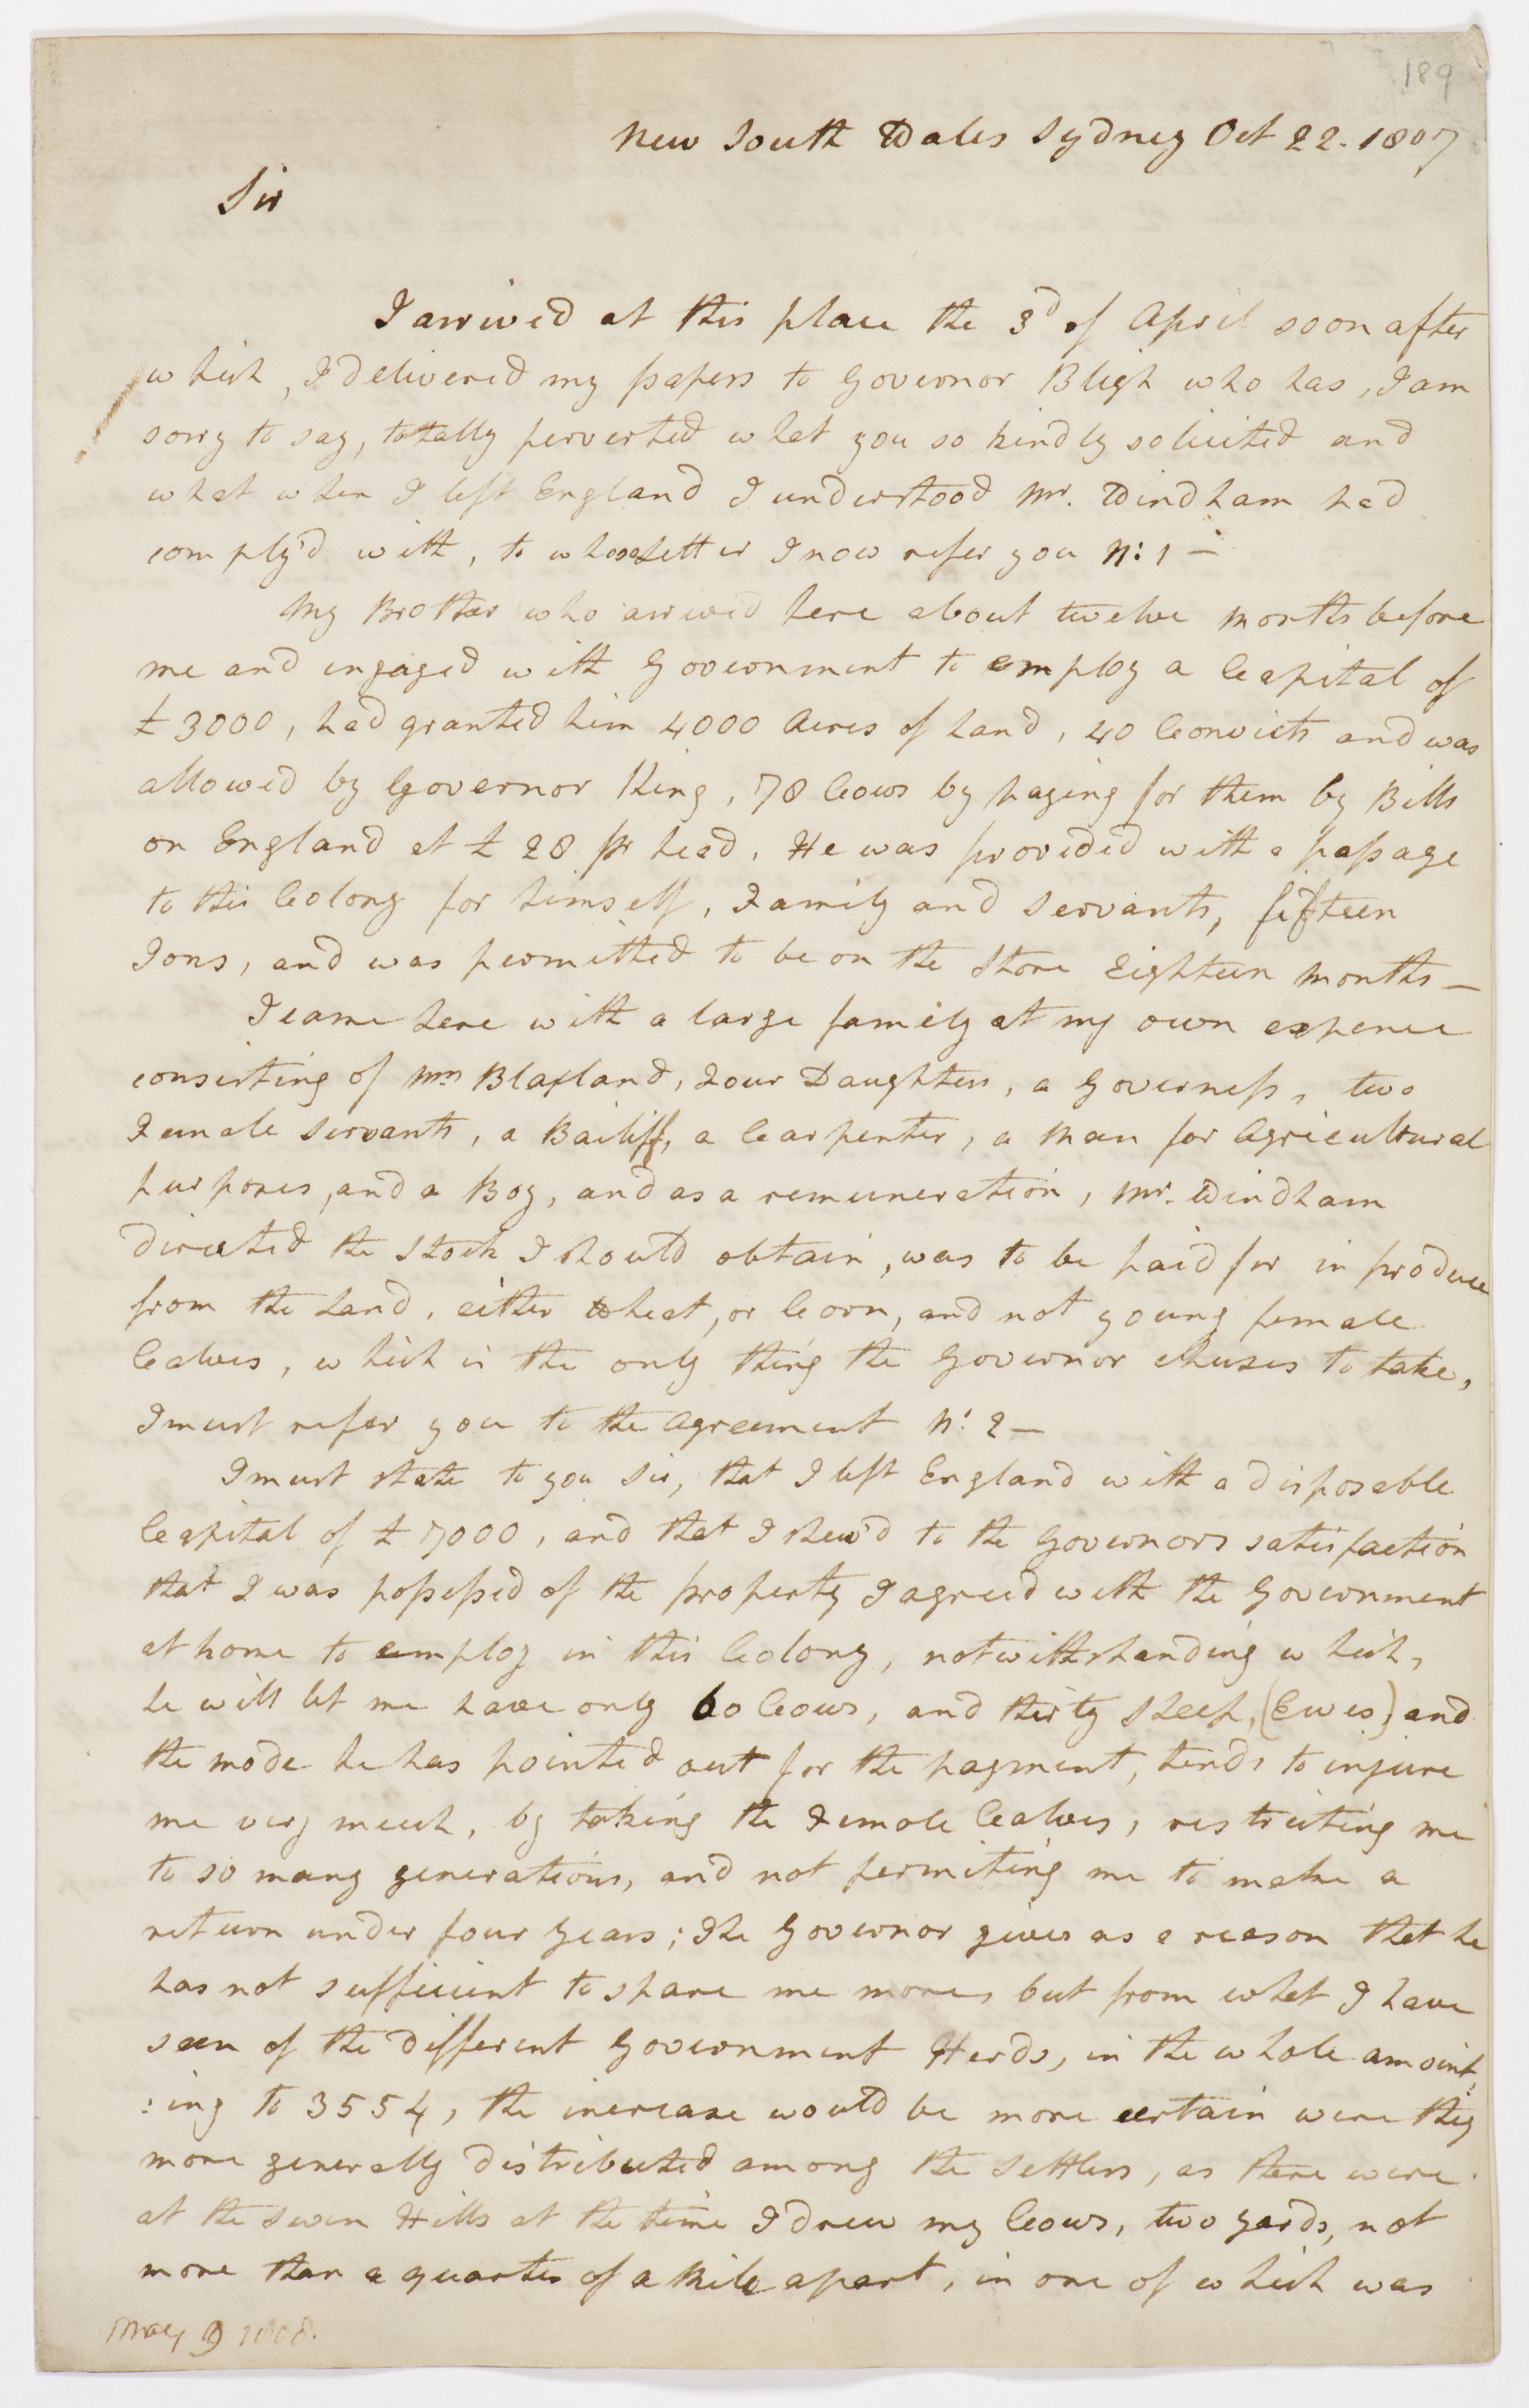 189
New South Wales Sydney Oct 22. 1807
Sir
I arrived at this place the 3d of April soon after
which, I delivered my papers to Governor Bligh who has, I am
sorry to say, totally perverted what you so kindly solicited and
what when I left England I understood Mr. Windham had
comply'd with, to whose letter I now refer you N: 1 —
My Brother who arrived here about twelve months before
me and engaged with Government to employ a Capital of
£3000, had granted him 4000 Acres of Land, 40 Convicts and was
allowed by Governor King, 78 Cows by paying for them by Bills
on England at £28 pr head, He was provided with a passage
to this Colony for himself, Family and Servants, fifteen
Tons, and was permitted to be on the Store Eighteen Months —
I came here with a large family at my own expence
consisting of Mrs Blaxland, Four Daughters, a Governess, two
Female Servants, a Bailiff, a Carpenter, a Man for Agricultural
purposes, and a Boy, and as a remuneration, Mr. Windham
directed the Stock I should obtain, was to be paid for in produce
from the Land, either Wheat, or Corn, and not young female
Calves, which is the only thing the Governor chuses to take,
I must refer you to the Agreement N: 2 —
I must state to you Sir, that I left England with a disposable
Capital of £7000, and that I shew'd to the Governors satisfaction
that I was possessed of the property I agreed with the Government
at home to employ in this Colony, notwithstanding which,
he will let me have only 60 Cows, and thirty Sheep, (Ewes) and
the mode he has pointed out for the payment, tends to injure
me very much, by taking the Female Calves, restricting me
to so many generations, and not permiting me to make a
return under four Years; The Governor gives as a reason that he
has not sufficient to spare me more, but from what I have
seen of the different Government Herds, in the whole amount,
:ing to 3554, the increase would be more certain were they
more generally distributed among the Settlers, as there were
at the Seven Hills at the time I drew my Cows, two yards, not
more than a quarter of a Mile apart, in one of which was
May 9 1808.